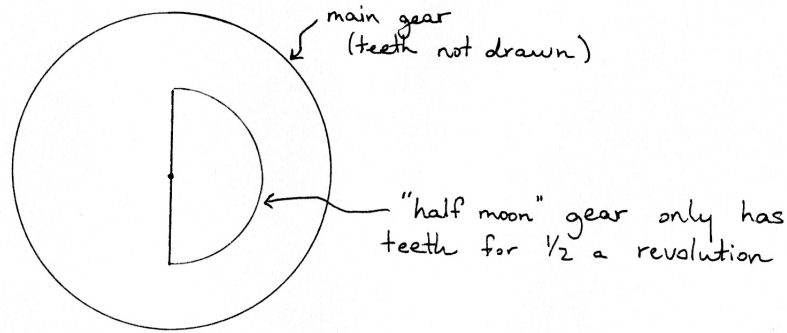 main gear
(teeth not drawn)
"half moon" gear only has
teeth for 1/2 a revolution